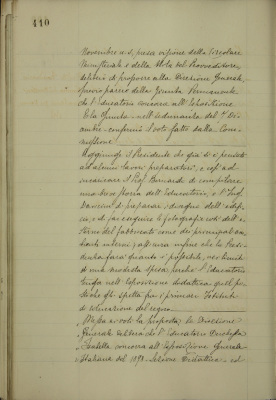 410
Novembre u. s., presa visione della Circolare
Ministeriale e della Nota del Provveditore,
deliberò di proporre alla Direzione Generale,
previo parere della Giunta Permanente,
che l'Educatorio concorra all'Esposizione.
E la Giunta nell'adunanza del 1° Di-
cembre confermò il voto fatto dalla Com-
missione.
Aggiunge il Presidente che già si è pensato
ad alcuni lavori preparatori, e cioè ad
incaricare il Prof. Bernardi di compilare
una breve storia dell'Educatorio, e l'Ing.
di preparare i disegni dell'edifi-
cio, e di far eseguire le fotografie così dell'e-
sterno del fabbricato come dei principali am-
bienti interni; assicura infine che la Presi-
denza farà quanto è possibile, nei limiti
di una modesta spesa perché l'Educatorio
tenga nell'Esposizione didattica quel po-
sto che gli spetta fra i primari Istituti
di educazione del regno.
Messa ai voti la proposta, la Direzione
Generale delibera che l'Educatorio
concorra all'Esposizione Generale
Italiana del 1898. Sezione Didattica, ed